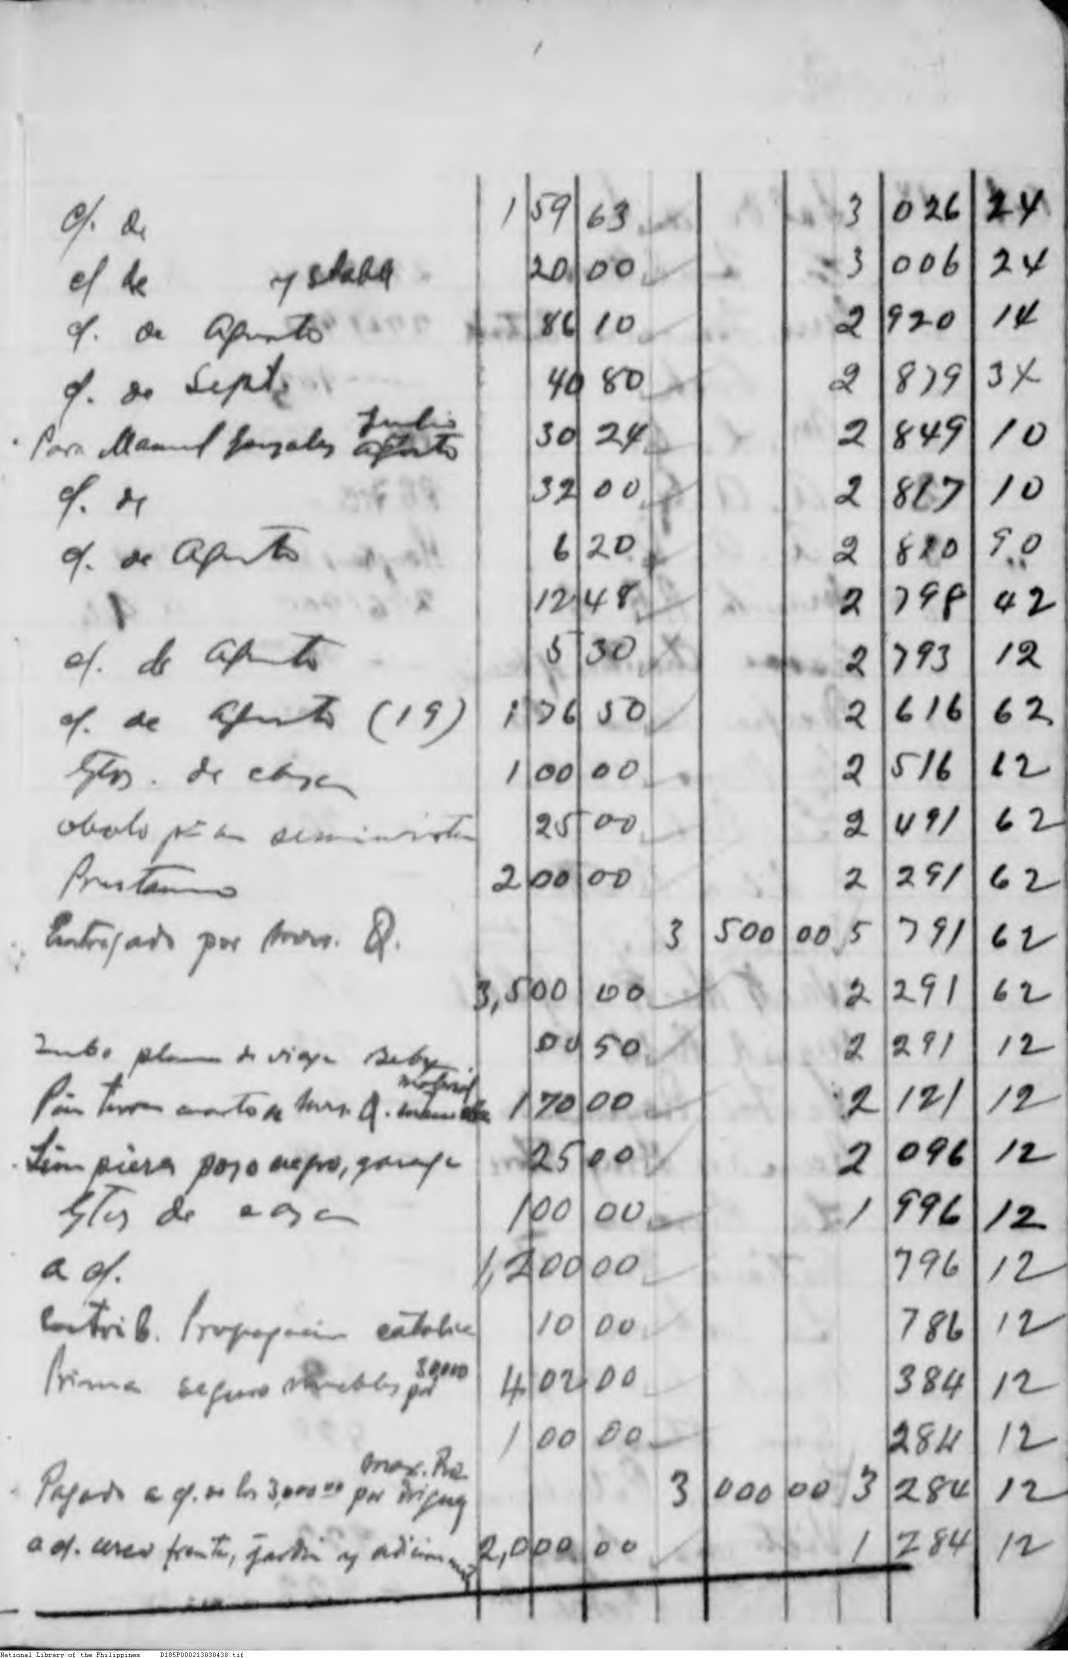 cf. de 159 63 3 026 24
cf de y 20 00 3 006 24
cf. de Agosto 86 10 2 920 14
cf. de Sept. 40 80 2 879 34
Para Manuel Gonzales Julio Agosto 30 24 2 849 10
cf. de 32 00 2 817 10
cf. de Agosto 6 20 2 810 90
12 48 2 798 42
cf. de Agosto 5 30 2 793 12
cf. de Agosto (19) 176 50 2 616 62
Gtos. de casa 100 00 2 516 62
obolo 25 00 2 491 62
Prestamo 200 00 2 291 62
Entregado por Mons. Q. 3 500 00 5 791 62
3,500 00 2 291 62
de viaje 00 50 2 291 12
Pinturas cuarto de Mons. Q. material 170 00 2 121 12
Limpieza pozo negro, garage 25 00 2 096 12
Gtos de casa 100 00 1 996 12
a cf. 1,200 00 796 12
Contrib. Propagacion catolica 10 00 786 12
Prima seguro muebles por 30,000 402 00 384 12
100 00 284 12
Pagado a cf. de los 3,000 00 por 3 000 00 3 284 12
a cf. cerco frente, jardin y 2,000 00 1 284 12
National Library of the Philippines D185P000213830438.tif